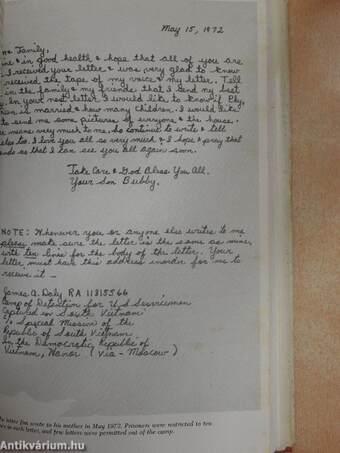 May 15, 1972
Family,
in good health & hope that all of you are
I received your letter & was very glad to know
received the tape of my voice & my letter. Tell
in the family & my friends that I send my best
In your next letter I would like to know if
is married & how many children. I would like
to send me some pictures of everyone & the house.
means very much to me. So continue to write & tell
too. I love you all so very much & I hope & pray that
ends so that I can see you all again soon.
Take Care & God Bless You All.
Your Son Bubby.
NOTE: Whenever you or anyone else writes to me
please make sure the letter is the same as mine,
with ten lines for the body of the letter. Your
letter must have this address inorder for me to
receive it —
James A. Daly RA 11815546
Camp of Detention for U S Servicemen
Captured in South Vietnam
Special Mission of the
Republic of South Vietnam
in the Democratic Republic of
Vietnam, Hanoi (Via - Moscow)
letter Jim wrote to his mother in May 1972. Prisoners were restricted to ten
lines in each letter, and few letters were permitted out of the camp.
Antikvárium.hu